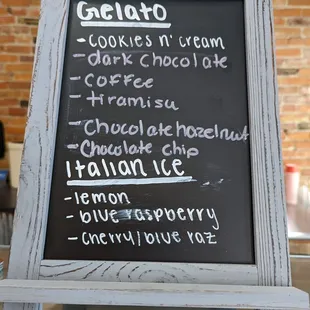 Gelato
-Cookies n' cream
-dark chocolate
-coffee
-tiramisu
-Chocolate hazelnut
-Chocolate chip
Italian Ice
-lemon
-blue raspberry
-cherry/blue raz